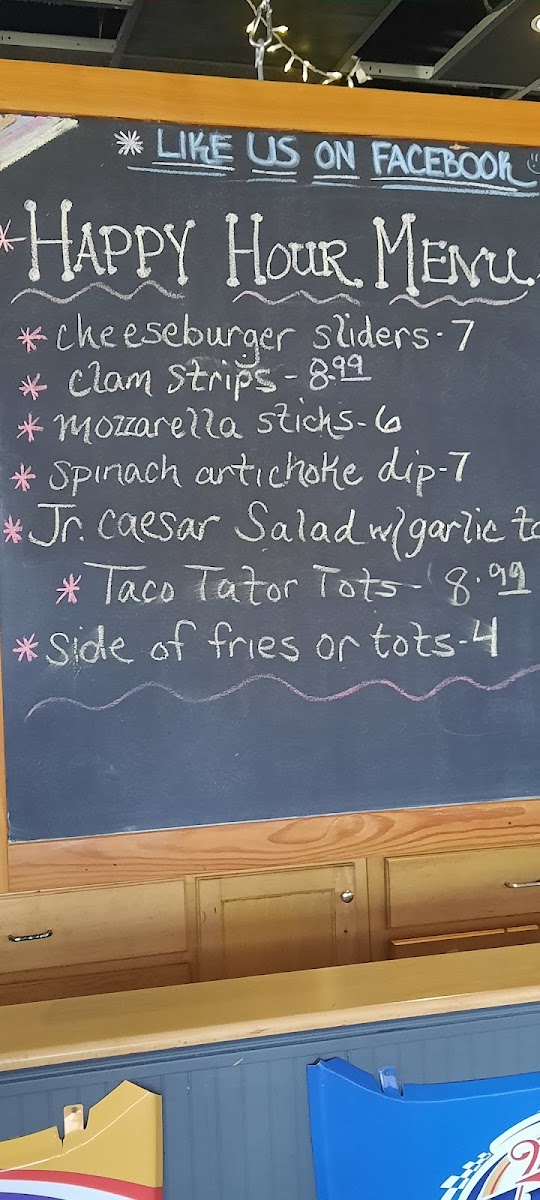 LIKE US ON FACEBOOK
HAPPY HOUR MENU
* cheeseburger sliders - 7
* clam strips - 8.99
* mozzarella sticks - 6
* spinach artichoke dip - 7
* Jr. caesar Salad w/garlic
* Taco Tator Tots - 8.99
* side of fries or tots - 4